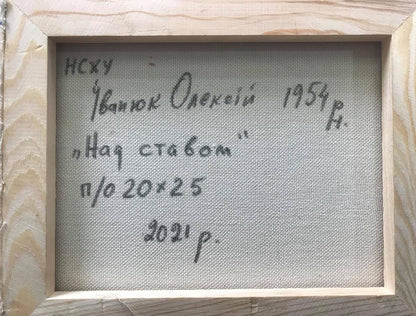 НСХУ
Іванюк Олексій 1954 р.н.
„Над ставом"
п/о 20×25
2021 р.